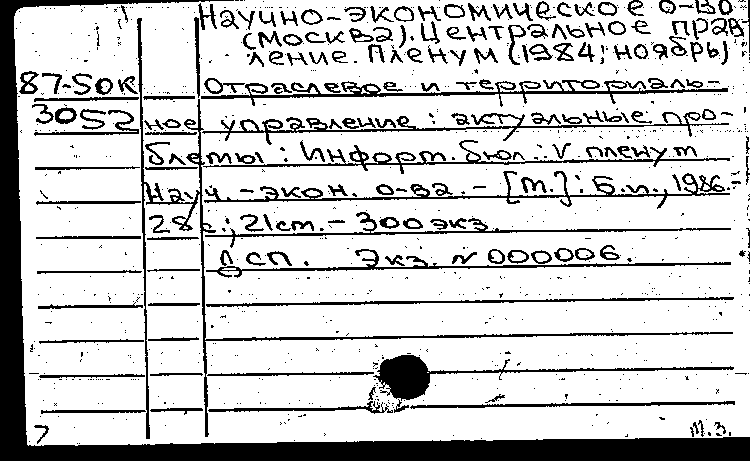 Научно-экономическое о-во
(Москва). Центральное прав
ление. Пленум (1984; ноябрь)
87-50К Отраслевое и территориаль-
3052 ное управление : актуальные про-
блемы : Информ. бюл. : V пленум
Науч.-экон. о-ва. - [М.] : Б.и., 1986.-
28с.; 21см. - 300 экз.
ДСП. Экз. № 000006.
7 М.З.